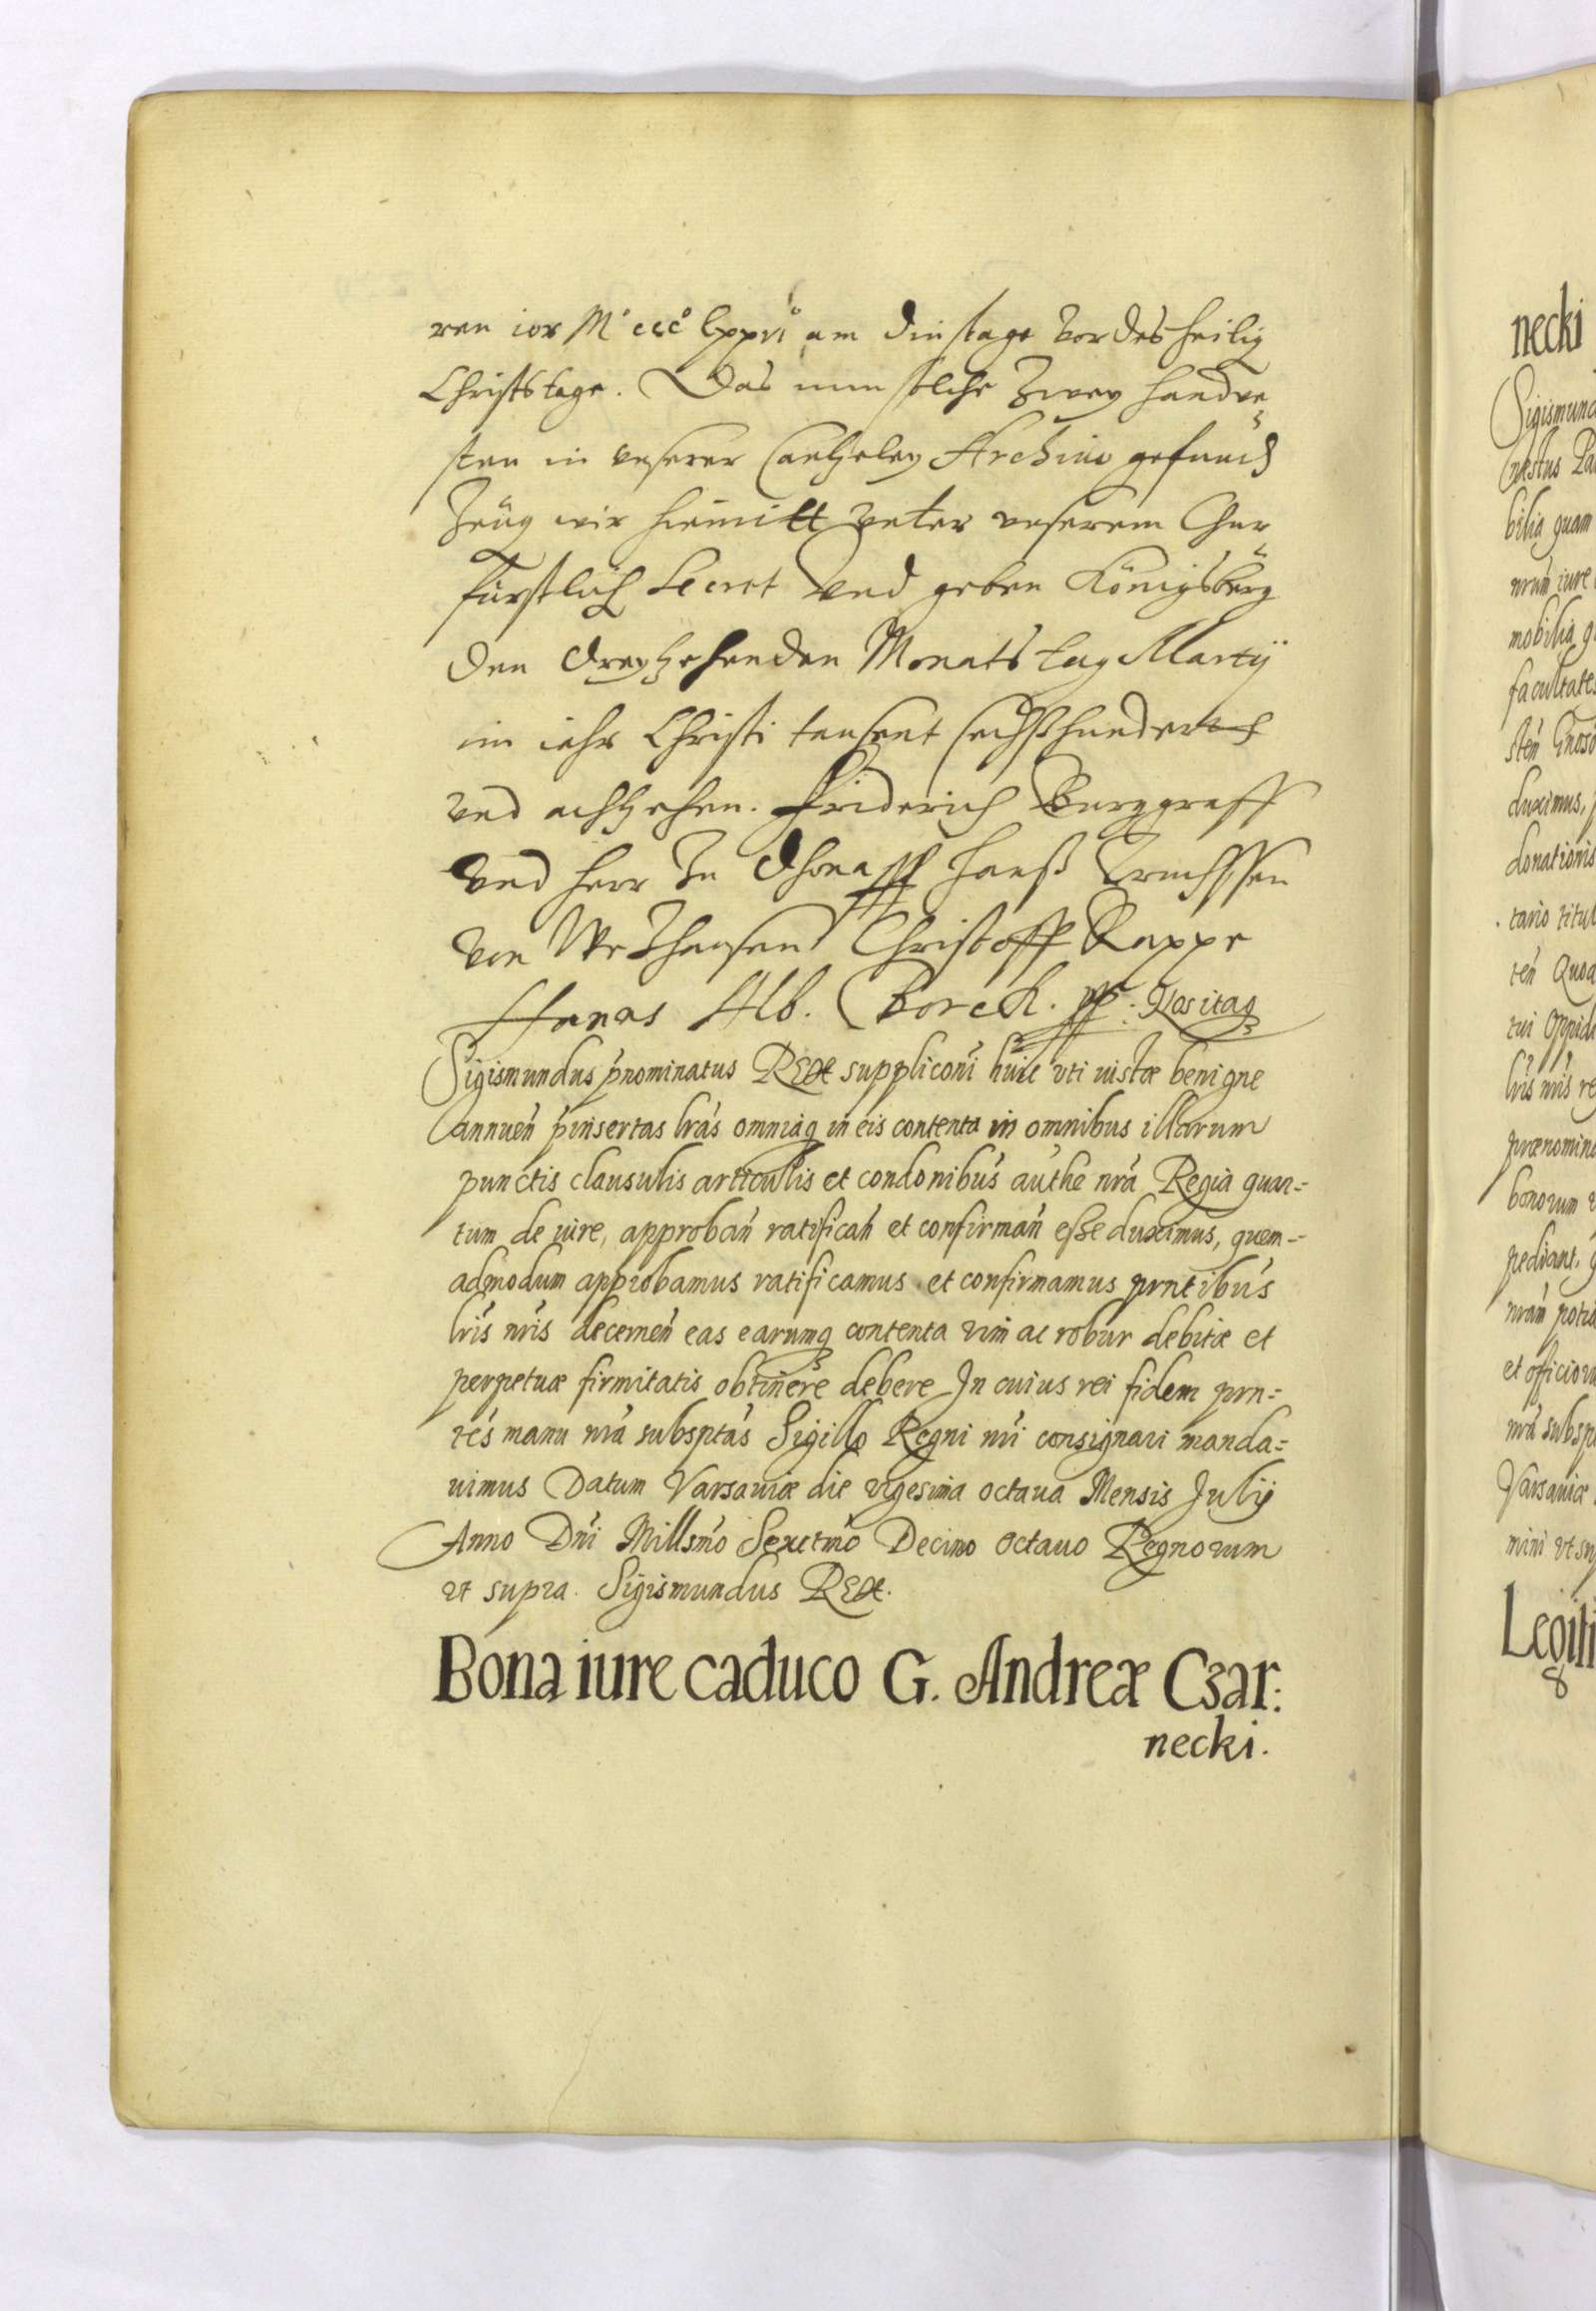 ren ior M° ccc° lxxvi° am dinstage vor des heilig
Christstage. Das nun solche zwey handve¬
sten in unserer Cantzeley Archiuo gefund
Zeug wir hiemitt unter unserem Chur¬
fürstlich Secret und geben Königsberg
den dreyzehenden Monats tag Martij
im iahr Christi tausent sechsshundert
und achtzehen. Friderich Burggraff
und herr zu Dhona Hanss Truchsen
von Wetzhausen Christoff Rappe
Hanas Alb. Borck. Nos itaq
Sigismundus pnominatus Rex suppliconi huic uti iustæ benigne
annuen pinsertas lras omniaq in eis contenta in omnibus illarum
punctis clausulis articulis et condonibus authe nra Regia quan=
tum de iure, approban ratifican et confirman esse duximus, quem=
admodum approbamus ratificamus et confirmamus pntibus
lris nris decernen eas earumq contenta vim ac robur debitæ et
perpetuæ firmitatis obtinere debere In cuius rei fidem prn=
tes manu nra subsptas Sigillo Regni nri consignari manda=
uimus Datum Varsaviæ die vigesima octaua Mensis Julij
Anno Dni Millsmo Sexctmo Decimo octauo Regnorum
ut supra. Sigismundus Rex.
Bona iure caduco G. Andreæ Czar:
necki.
necki
Sigismund
bilia quam
nrum iure
mobilia
facultates
duximus,
donationis
tario titul
ten Quoq
tui Oppid
lris nris re
prænomin
bonorum
pediant.
nram
et officior
nra subsp
Varsaviæ
mini ut sup
Legiti